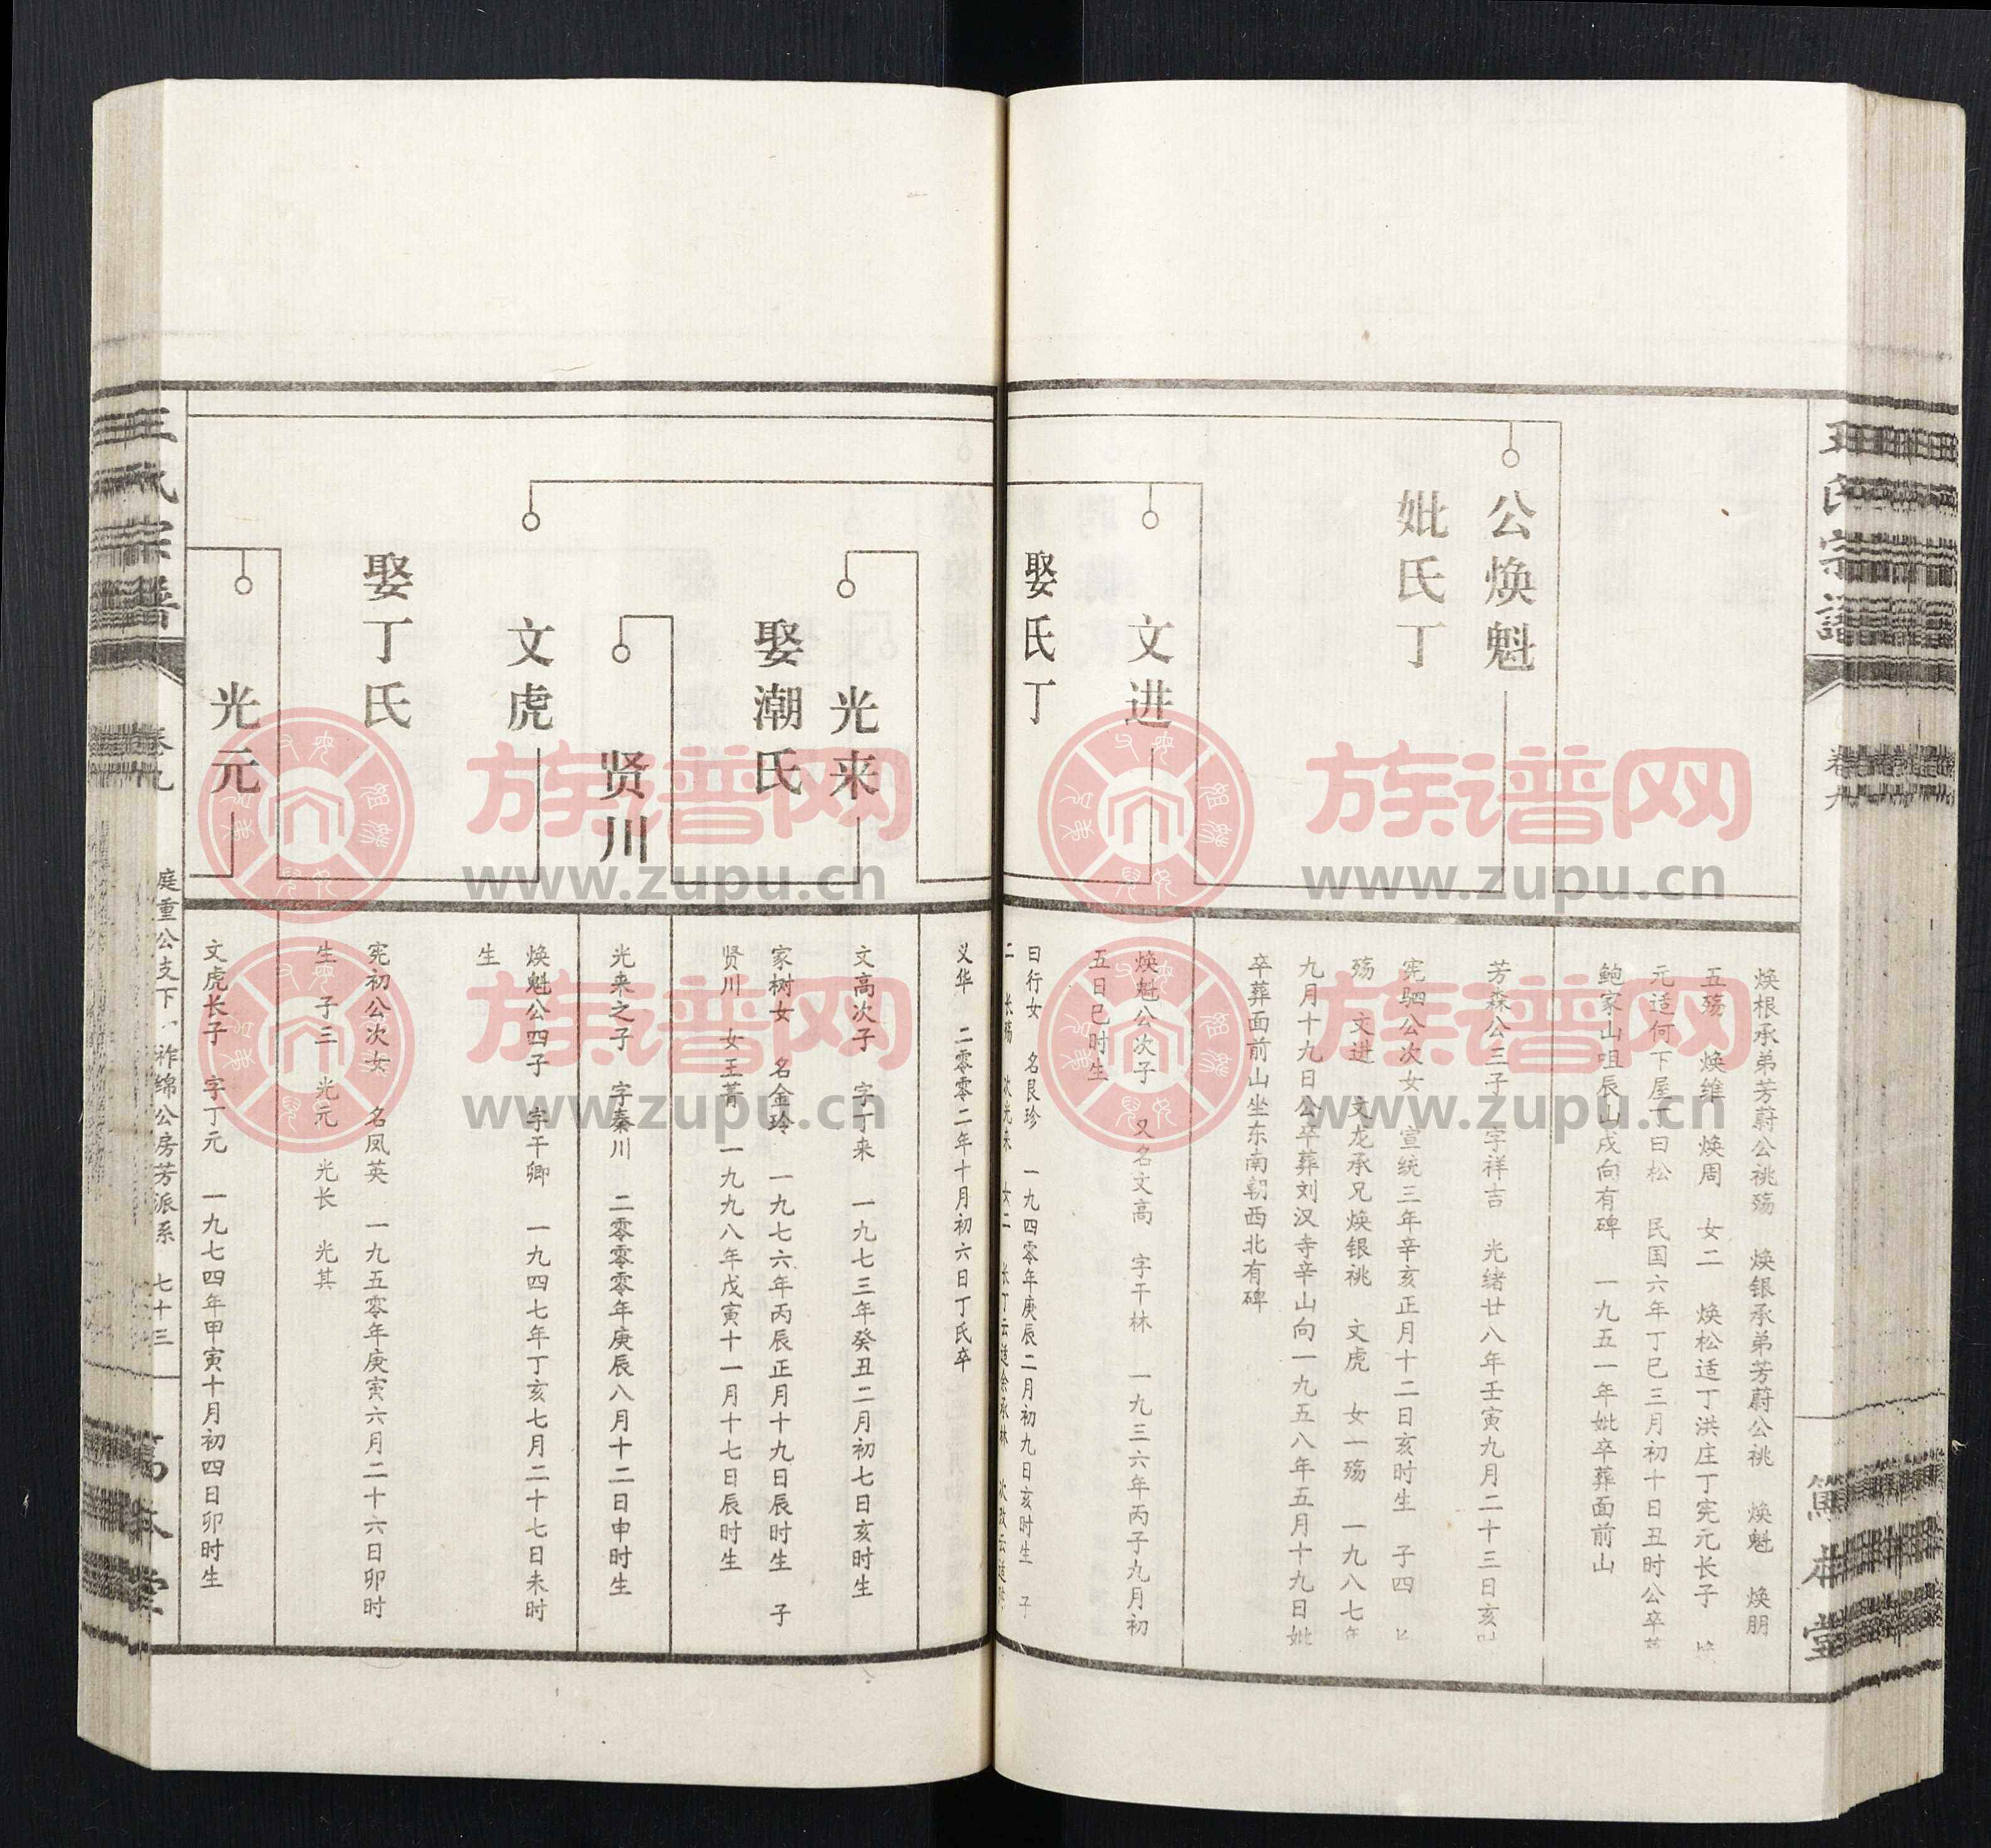 王氏宗谱
卷九
篤本堂
公焕魁
妣氏丁
文进
娶氏丁
焕根承弟芳蔚公祧殇 焕银承弟芳蔚公祧 焕魁 焕朋
五殇 焕维 焕周 女二 焕松适丁洪庄丁宪元长子
元适何下屋丁曰松 民国六年丁巳三月初十日丑时公卒
鲍家山咀辰山戌向有碑 一九五一年妣卒葬面前山
芳森公三子 字祥吉 光绪廿八年壬寅九月二十三日亥
宪驷公次女 宣统三年辛亥正月十二日亥时生 子四
殇 文进 文龙承兄焕银祧 文虎 女一殇 一九八七年
九月十九日公卒葬刘汉寺辛山向一九五八年五月十九日妣
卒葬面前山坐东南朝西北有碑
焕魁公次子 又名文高 字干林 一九三六年丙子九月初
五日巳时生
曰行女 名良珍 一九四零年庚辰二月初九日亥时生 子
二 长殇 次光来 女二 长丁云适余承林
义华 二零零二年十月初六日丁氏卒
光来
娶潮氏
贤川
文虎
娶丁氏
光元
文高次子 字丁来 一九七三年癸丑二月初七日亥时生
家树女 名金玲 一九七六年丙辰正月十九日辰时生 子
贤川 女王菁 一九九八年戊寅十一月十七日辰时生
光来之子 字秦川 二零零零年庚辰八月十二日申时生
焕魁公四子 字干卿 一九四七年丁亥七月二十七日未时
生
宪初公次女 名凤英 一九五零年庚寅六月二十六日卯时
生 子三 光元 光长 光其
文虎长子 字丁元 一九七四年甲寅十月初四日卯时生
王氏宗譜
卷九
庭重公支下 祚绵公房芳派系 七十三
篤本堂
族谱网
www.zupu.cn
族谱网
www.zupu.cn
族谱网
www.zupu.cn
族谱网
www.zupu.cn